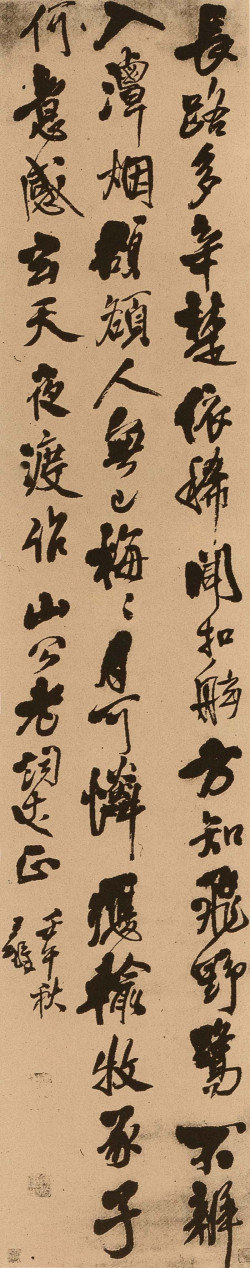 長路多辛楚依稀聞扣舷方知飛野鷺不辨
入潭烟頟頟人無已梅〻月可憐獲輸牧豕子
何意感玄天夜渡作山公老詞丈正
壬午秋
王鐸